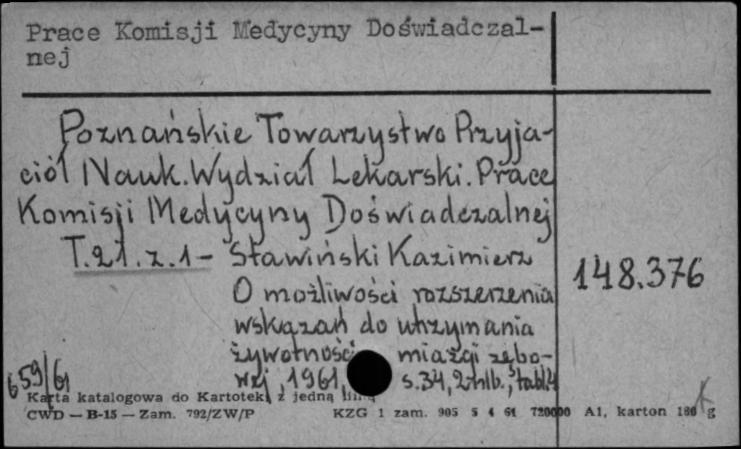 Prace Komisji Medycyny Doświadczal-
nej
Poznańskie Towarzystwo Przyja-
ciół Nauk. Wydział Lekarski. Prace
Komisji Medycyny Doświadczalnej
T.21.z.1- Sławiński Kazimierz
148.376
O możliwości rozszerzenia
wskazań do utrzymania
żywotności miazgi zębo-
wej, 1961, s.34, 2nlb., tabl4
659/61
Karta katalogowa do Kartotek z jedną linią
CWD — B-15 — Zam. 792/ZW/P KZG 1 zam. 905 5 4 61 720000 A1, karton 180 g